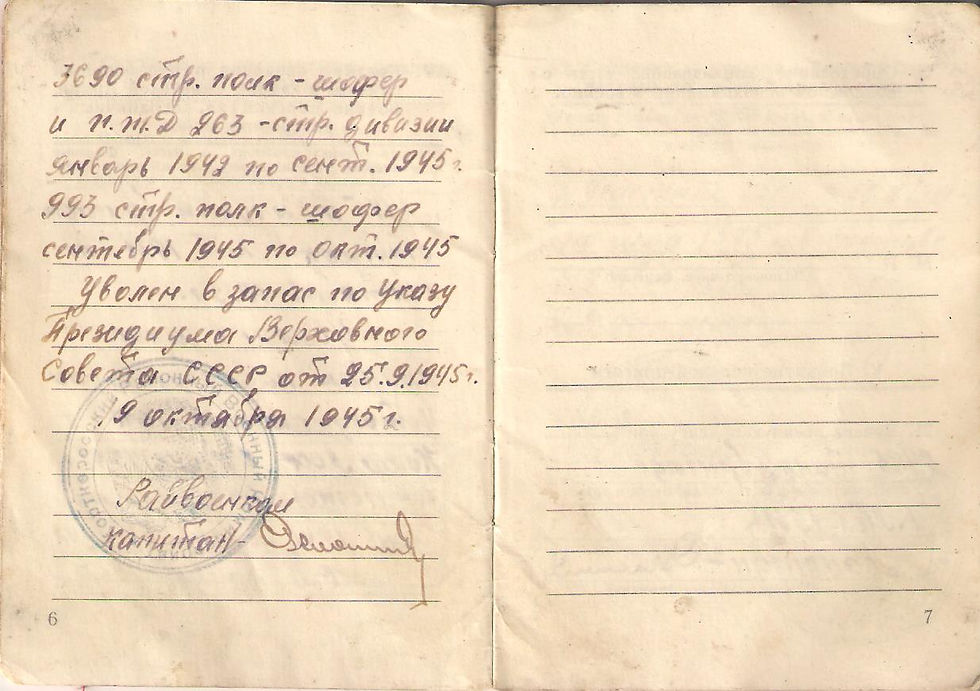 3690 стр. полк - шофер
и п.т.Д 263 - стр. дивизии
январь 1942 по сент. 1945 г.
993 стр. полк - шофер
сентябрь 1945 по окт. 1945
Уволен в запас по Указу
Президиума Верховного
Совета СССР от 25.9.1945 г.
19 октября 1945 г.
Райвоенком
капитан -
6
7